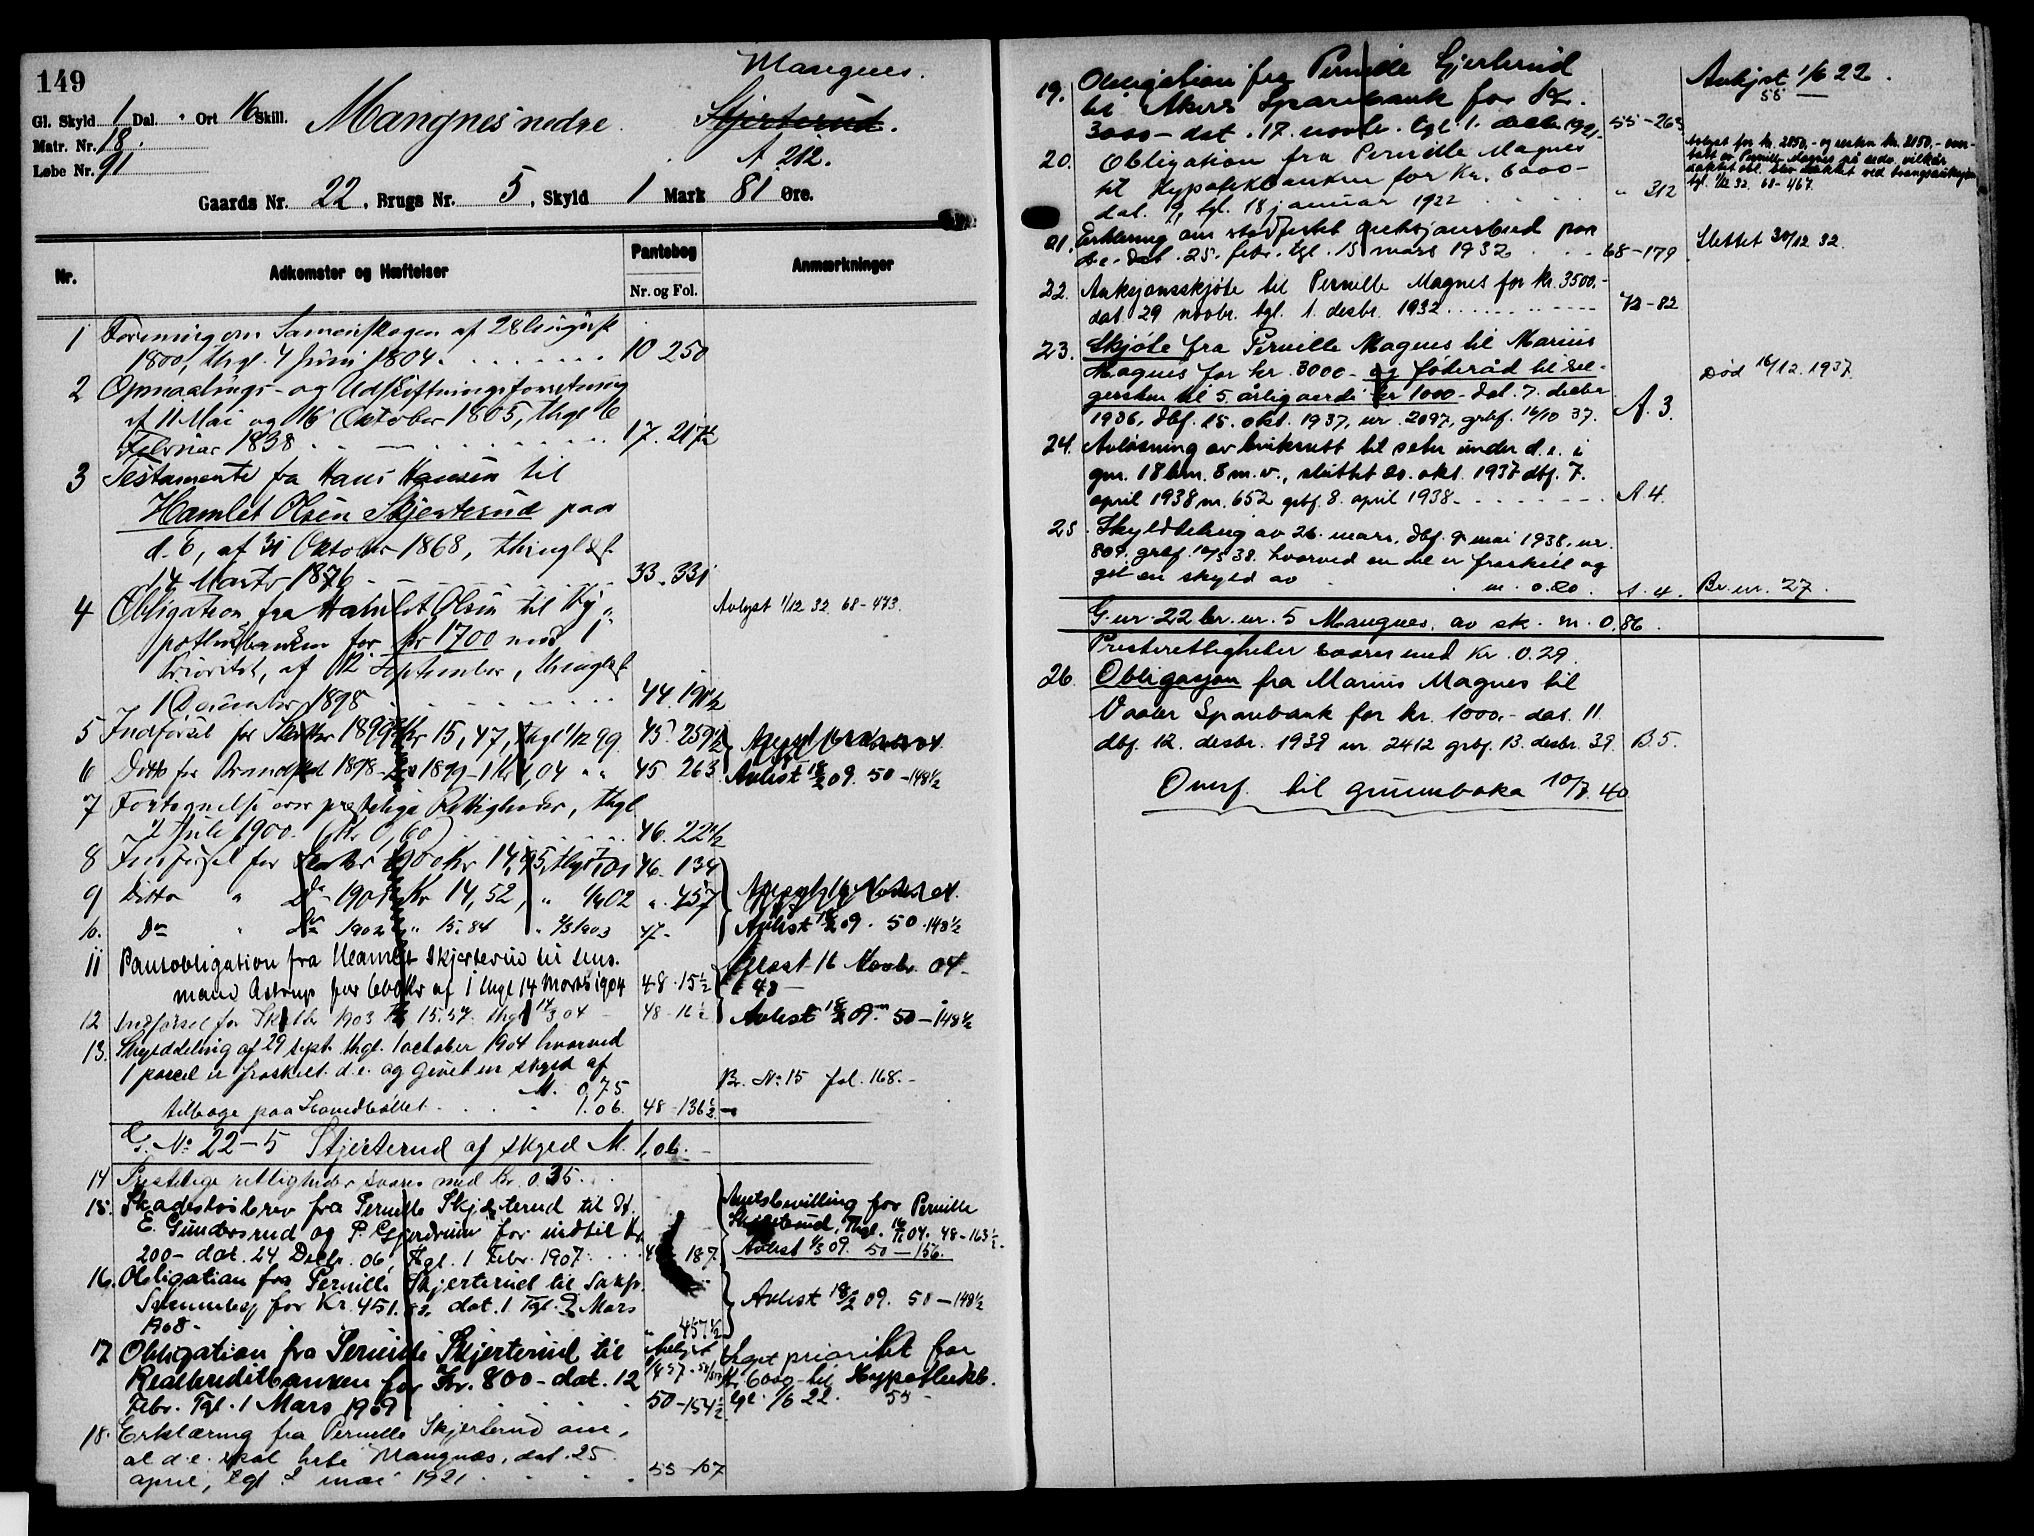 149
Mangnes.
Gl. Skyld 1 Dal. " Ort 16 Skill. Mangnes nedre. Skjerterud.
Matr. Nr. 18.
Løbe Nr. 91
A 212.
Gaards Nr. 22, Brugs Nr. 5, Skyld 1 Mark 81 Øre.
Nr. Adkomster og Hæftelser Pantebog Anmærkninger
Nr. og Fol.
1 Forening om Sameiskogen af 28
1800, thgl. 4 Juni 1804. 10 250
2 Opmaalings- og Udskiftningsforretning
af 11 Mai og 16 Oktober 1805, thgl 6
Februar 1838 17. 217
3 Testamente fra Hans Hansen til
Hamlet Olsen Skjerterud paa
d. e, af 31 Oktober 1868, thinglæst
14 Marts 1876 33. 331
4 Obligation fra Hamlet Olsen til Hy- Avlyst 1/12 32 68-473.
pothekbanken for Kr 1700 med 1
Prioritet, af 12 September, thinglæst
1 December 1898 44. 191½
5 Indførsel for Skatter 1899 Kr 15,47, thgl 1/12 99. 45. 259½
6 Ditto for Brandskat 1898- 1899-1 Kr 1,04 " " 45. 263 Avlæst 18/2 09. 50-148½
7 Fortegnelse over prestelige Rettigheder, thgl
2 Juli 1900. (Kr 0,60) 46. 22½
8 Indførsel for Skatter 1900 Kr 14,95, thgl 01 46. 134
9 Ditto " Do 1901 Kr 14,52, " 02 ". 457
10. Do " Do 1902 " 15.84 " 1903 47- Avlæst 18/2 09. 50-148½
11 Pantobligation fra Hamlet Skjerterud til Lens- Aflæst 16 Novbr. 04-
mand Astrup for 600 Kr af 1 thgl 14 Marts 1904 48-15½ 48-
12 Indførsel for Skatter 1903 Kr 15.57. thgl 14/3 04 48-16½ Avlæst 18/2 09. 50-148½
13. Skylddeling af 29 sept. thgl. 1 october 1904 hvorved
1 parcel er fraskilt d.e. og givet en skyld af Br. No 15 fol. 168.-
M. 0,75
tilbage paa Hovedbøllet 1.06. 48-136½
G. No 22-5 Skjerterud af skyld M. 1,06.-
14 Prestelige rettigheder svares med Kr. 0.35
15. Skadesløsbrev fra Pernille Skjerterud til H. Amtsbevilling for Pernille
E. Gundersrud og P. Gjerdrum for indtil Kr. Skjerterud, Thgl. 04. 48-163½-
200- dat. 24 Decbr. 06, tgl. 1 Febr. 1907 187 Avlæst 1/3 09. 50-156.
16. Obligation fra Pernille Skjerterud til Sakfr.
Svenneby for Kr. 451.82 dat. 1 Tgl. 2 Mars Avlæst 18/2 09. 50-148½
1908- " 457½
17 Obligation fra Pernille Skjerterud til Avlyst Veget prioritet for
Realkreditbanken for Kr. 800- dat. 12 Kr 6000- til Hypothekb.
Febr. Tgl. 1 Mars 1909 50-154½ tgl. 1/6 22. 55-
18. Erklæring fra Pernille Skjerterud om,
at d.e. skal hete Mangnæs, dat. 25
april, tgl 2 mai 1921 55-107
19. Obligation fra Pernille Skjerterud Avlyst 1/6 22.
til Akers Sparebank for Kr. 55
3000- dat. 17. novbr. tgl. 1. decbr. 1921. 55-263
20. Obligation fra Pernille Magnes Avlyst for kr. 2850,- og resten kr. 3150,- over-
til Hypotekbanken for Kr. 6000- tatt av Pernille Magnes på sedv. vilkår
dat. 9, tgl. 18 januar 1922 " 312 da ved tvangsauksjon
tgl. 1/12 32. 68-467.
21. Erklæring om stadfestet auksjonsbud paa
d.e. dat. 25. febr. tgl. 15 mars 1932 68-179 Slettet 30/12 32.
22. Auksjonsskjøte til Pernille Magnes for kr. 3500.-
dat. 29 novbr. tgl. 1. desbr. 1932 72-82
23. Skjøte fra Pernille Magnes til Marius
Magnes for kr. 3000- og føderåd til sel- Død 16/12. 1937.
gersken til 5 årlig verdi kr 1000- dat. 7. desbr
1936, dbf. 15. okt. 1937, nr. 2097, grbf. 16/10 37. A. 3.
24. Avløsning av bruksrett til seter under d.e. i
gnr. 18 bnr. 8 m.v., sluttet 20. okt. 1937 dbf. 7.
april 1938 nr. 652 grbf. 8. april 1938 A. 4.
25. Skylddeling av 26. mars, dbf. 9 mai 1938, nr.
809. grbf. 10/5 38. hvorved en del er fraskilt og
gitt en skyld av m. 0.20. A. 4. Br. nr. 27.
G. nr. 22 br. nr. 5 Mangnes, av sk. m. 0.86.
Presterettigheter svares med Kr. 0.29.
26. Obligasjon fra Marius Magnes til
Vaaler Sparebank for kr. 1000.- dat. 11.
dbf. 12. desbr. 1939 nr. 2412 grbf. 13. desbr. 39. B. 5.
Overf. til grunnboka 10/7. 40